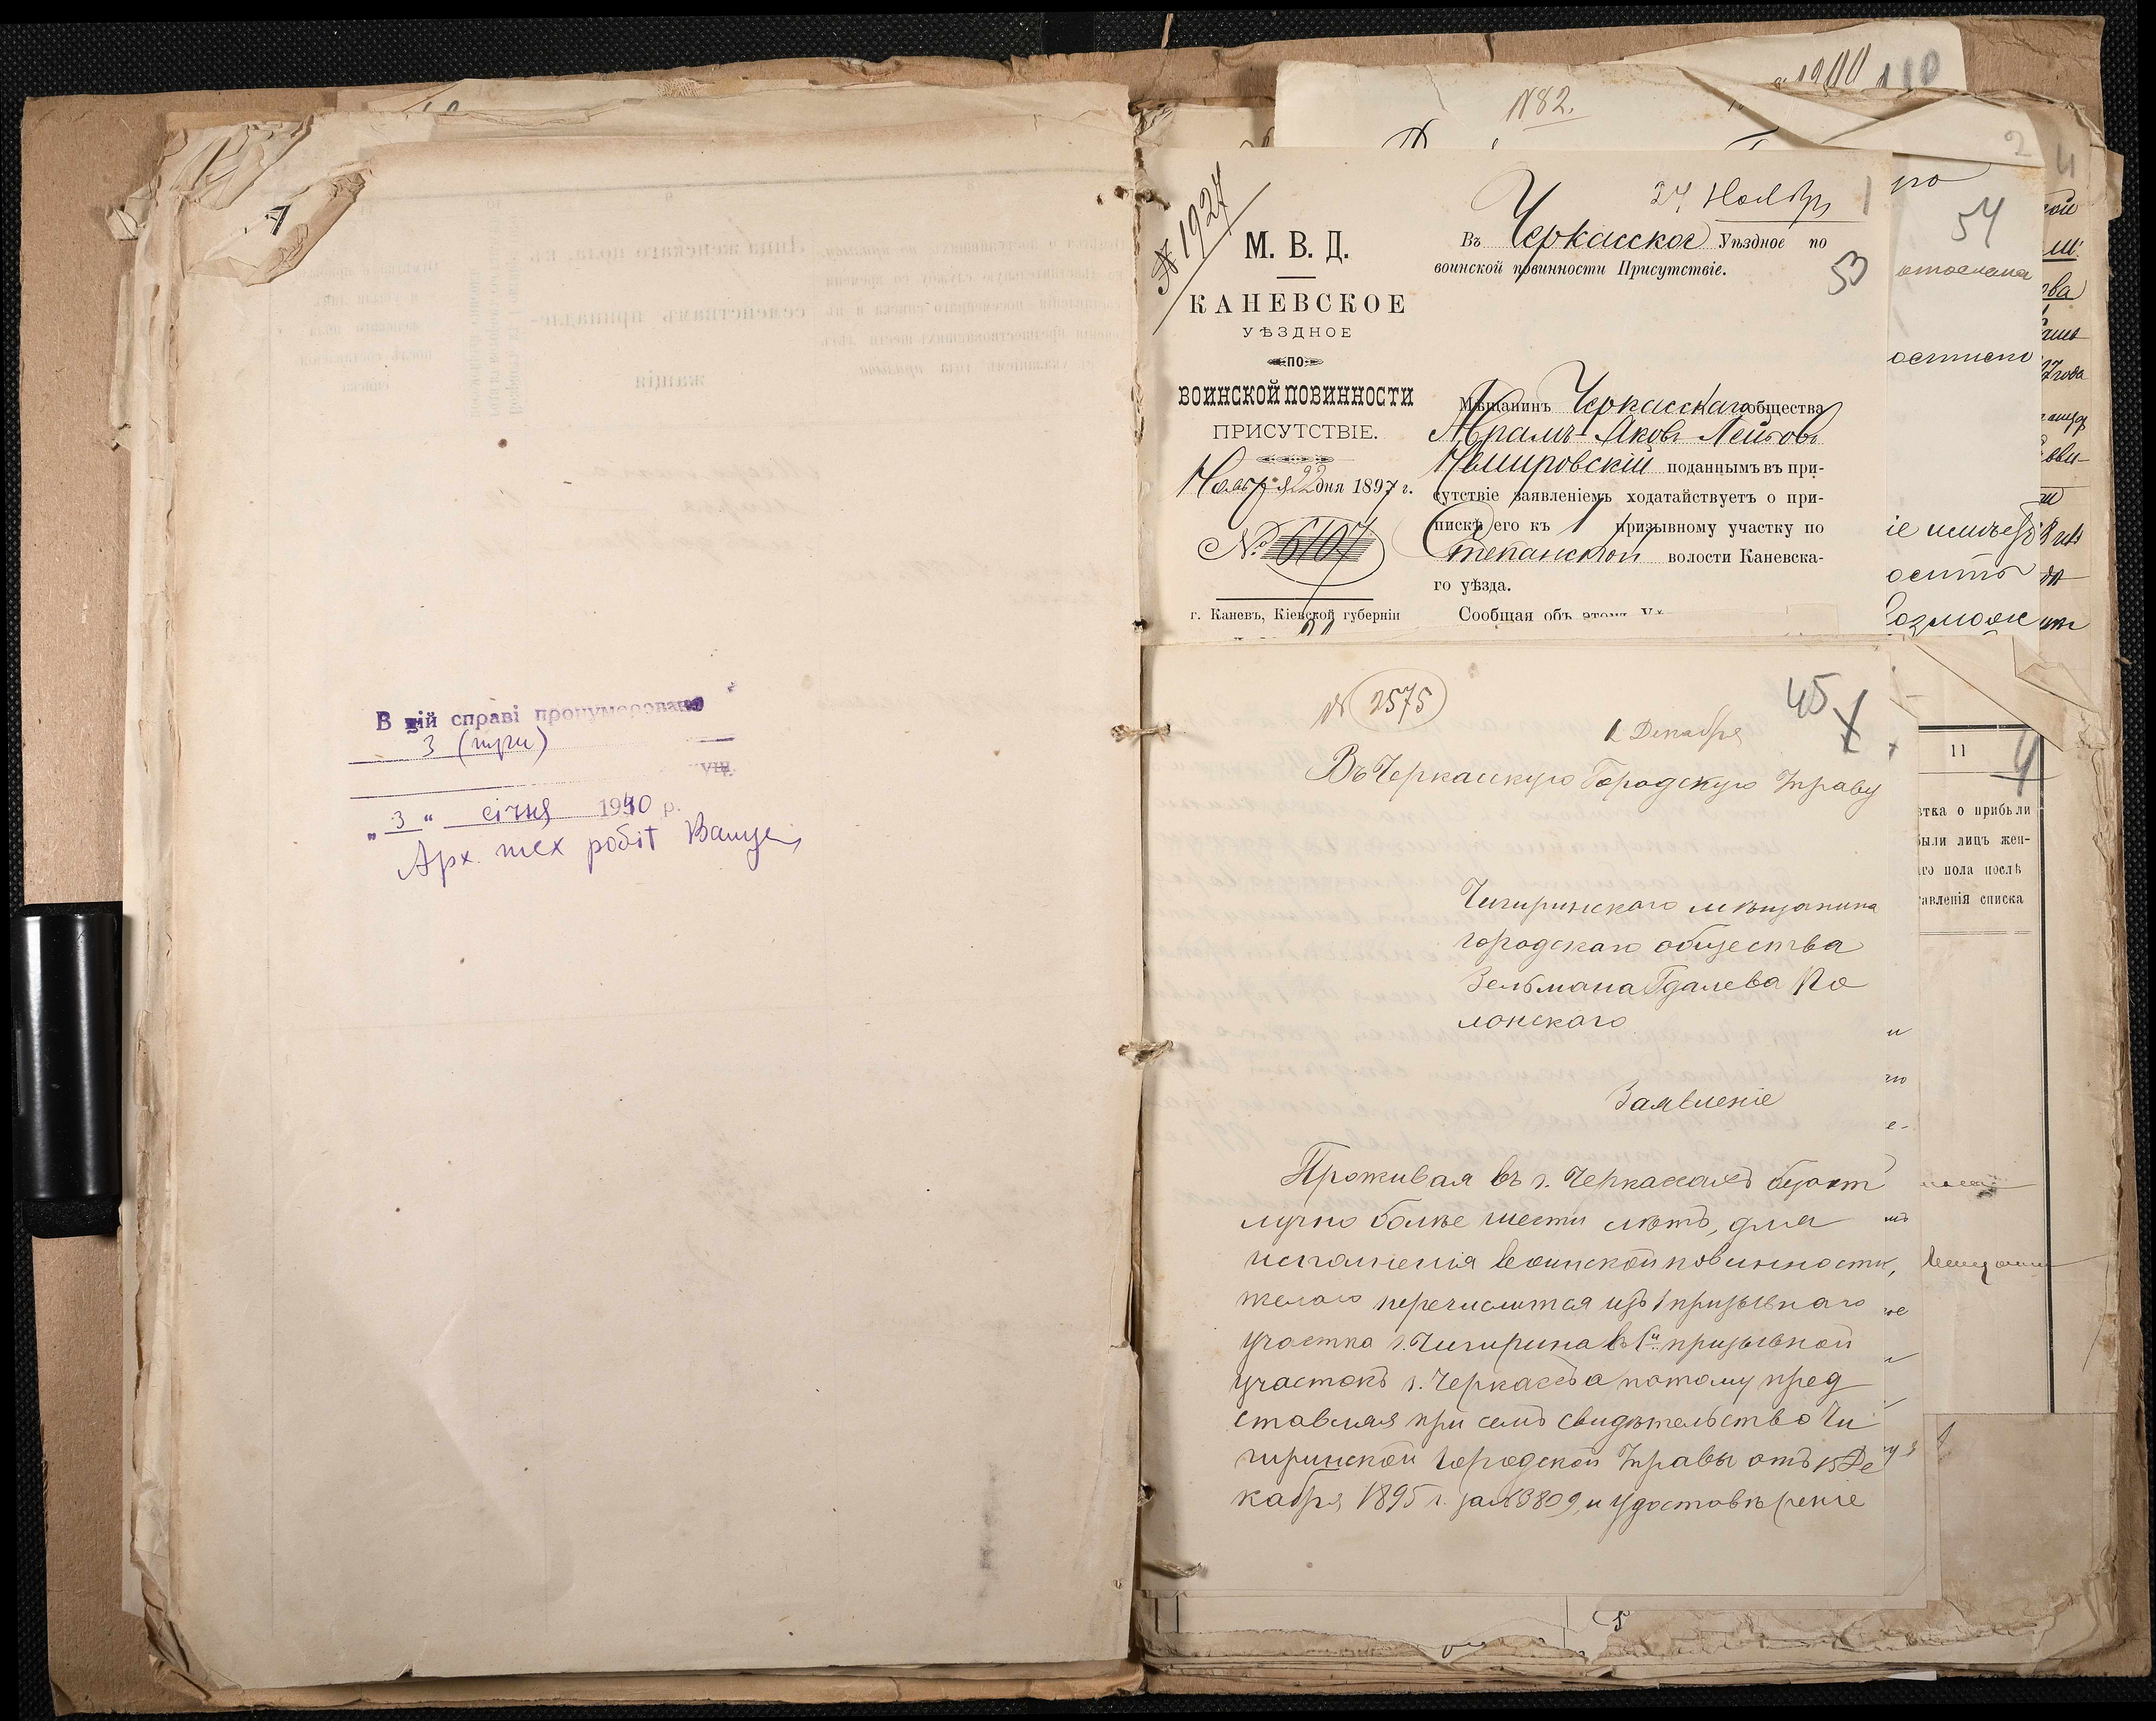 В цій справі пронумеровано
3 (три)
„ 3 “ січня 1940 р.
Арх. тех робіт
№ 82.
1900
110
2
4
№ 1927
27 Ноября
1
53
М. В. Д.
КАНЕВСКОЕ
УѢЗДНОЕ
ПО
ВОИНСКОЙ ПОВИННОСТИ
ПРИСУТСТВІЕ.
Ноября 22 дня 1897 г.
№ 6107
г. Каневъ, Кіевской губерніи
Въ Черкасское Уѣздное по
воинской повинности Присутствіе.
Мѣщанинъ Черкасскаго общества
Абрамъ-Яковъ Лейбовъ
Немировскій поданнымъ въ при-
сутствіе заявленіемъ ходатайствуетъ о при-
пискѣ его къ 1 призывному участку по
Степанской волости Каневска-
го уѣзда.
Сообщая объ этомъ
54
№ 2575
45
1 Декабря
Въ Черкасскую Городскую Управу
Чигиринскаго мѣщанина
городскаго общества
Зельмана Гдалева По
лонскаго
Заявленіе
Проживая въ г. Черкассахъ безот
лучно болѣе шести лѣтъ, для
исполненія воинской повинности,
желаю перечислится изъ 1 призывнаго
участка г. Чигирина въ 1й призывной
участокъ г. Черкассъ а потому пред
ставляя при семъ свидѣтельство Чи
гиринской Городской Управы отъ 15 Де
кабря 1895 г. за № 3809, и удостовѣреніе
11
4
ѣтка о прибыли
были лицъ жен-
аго пола послѣ
тавленія списка